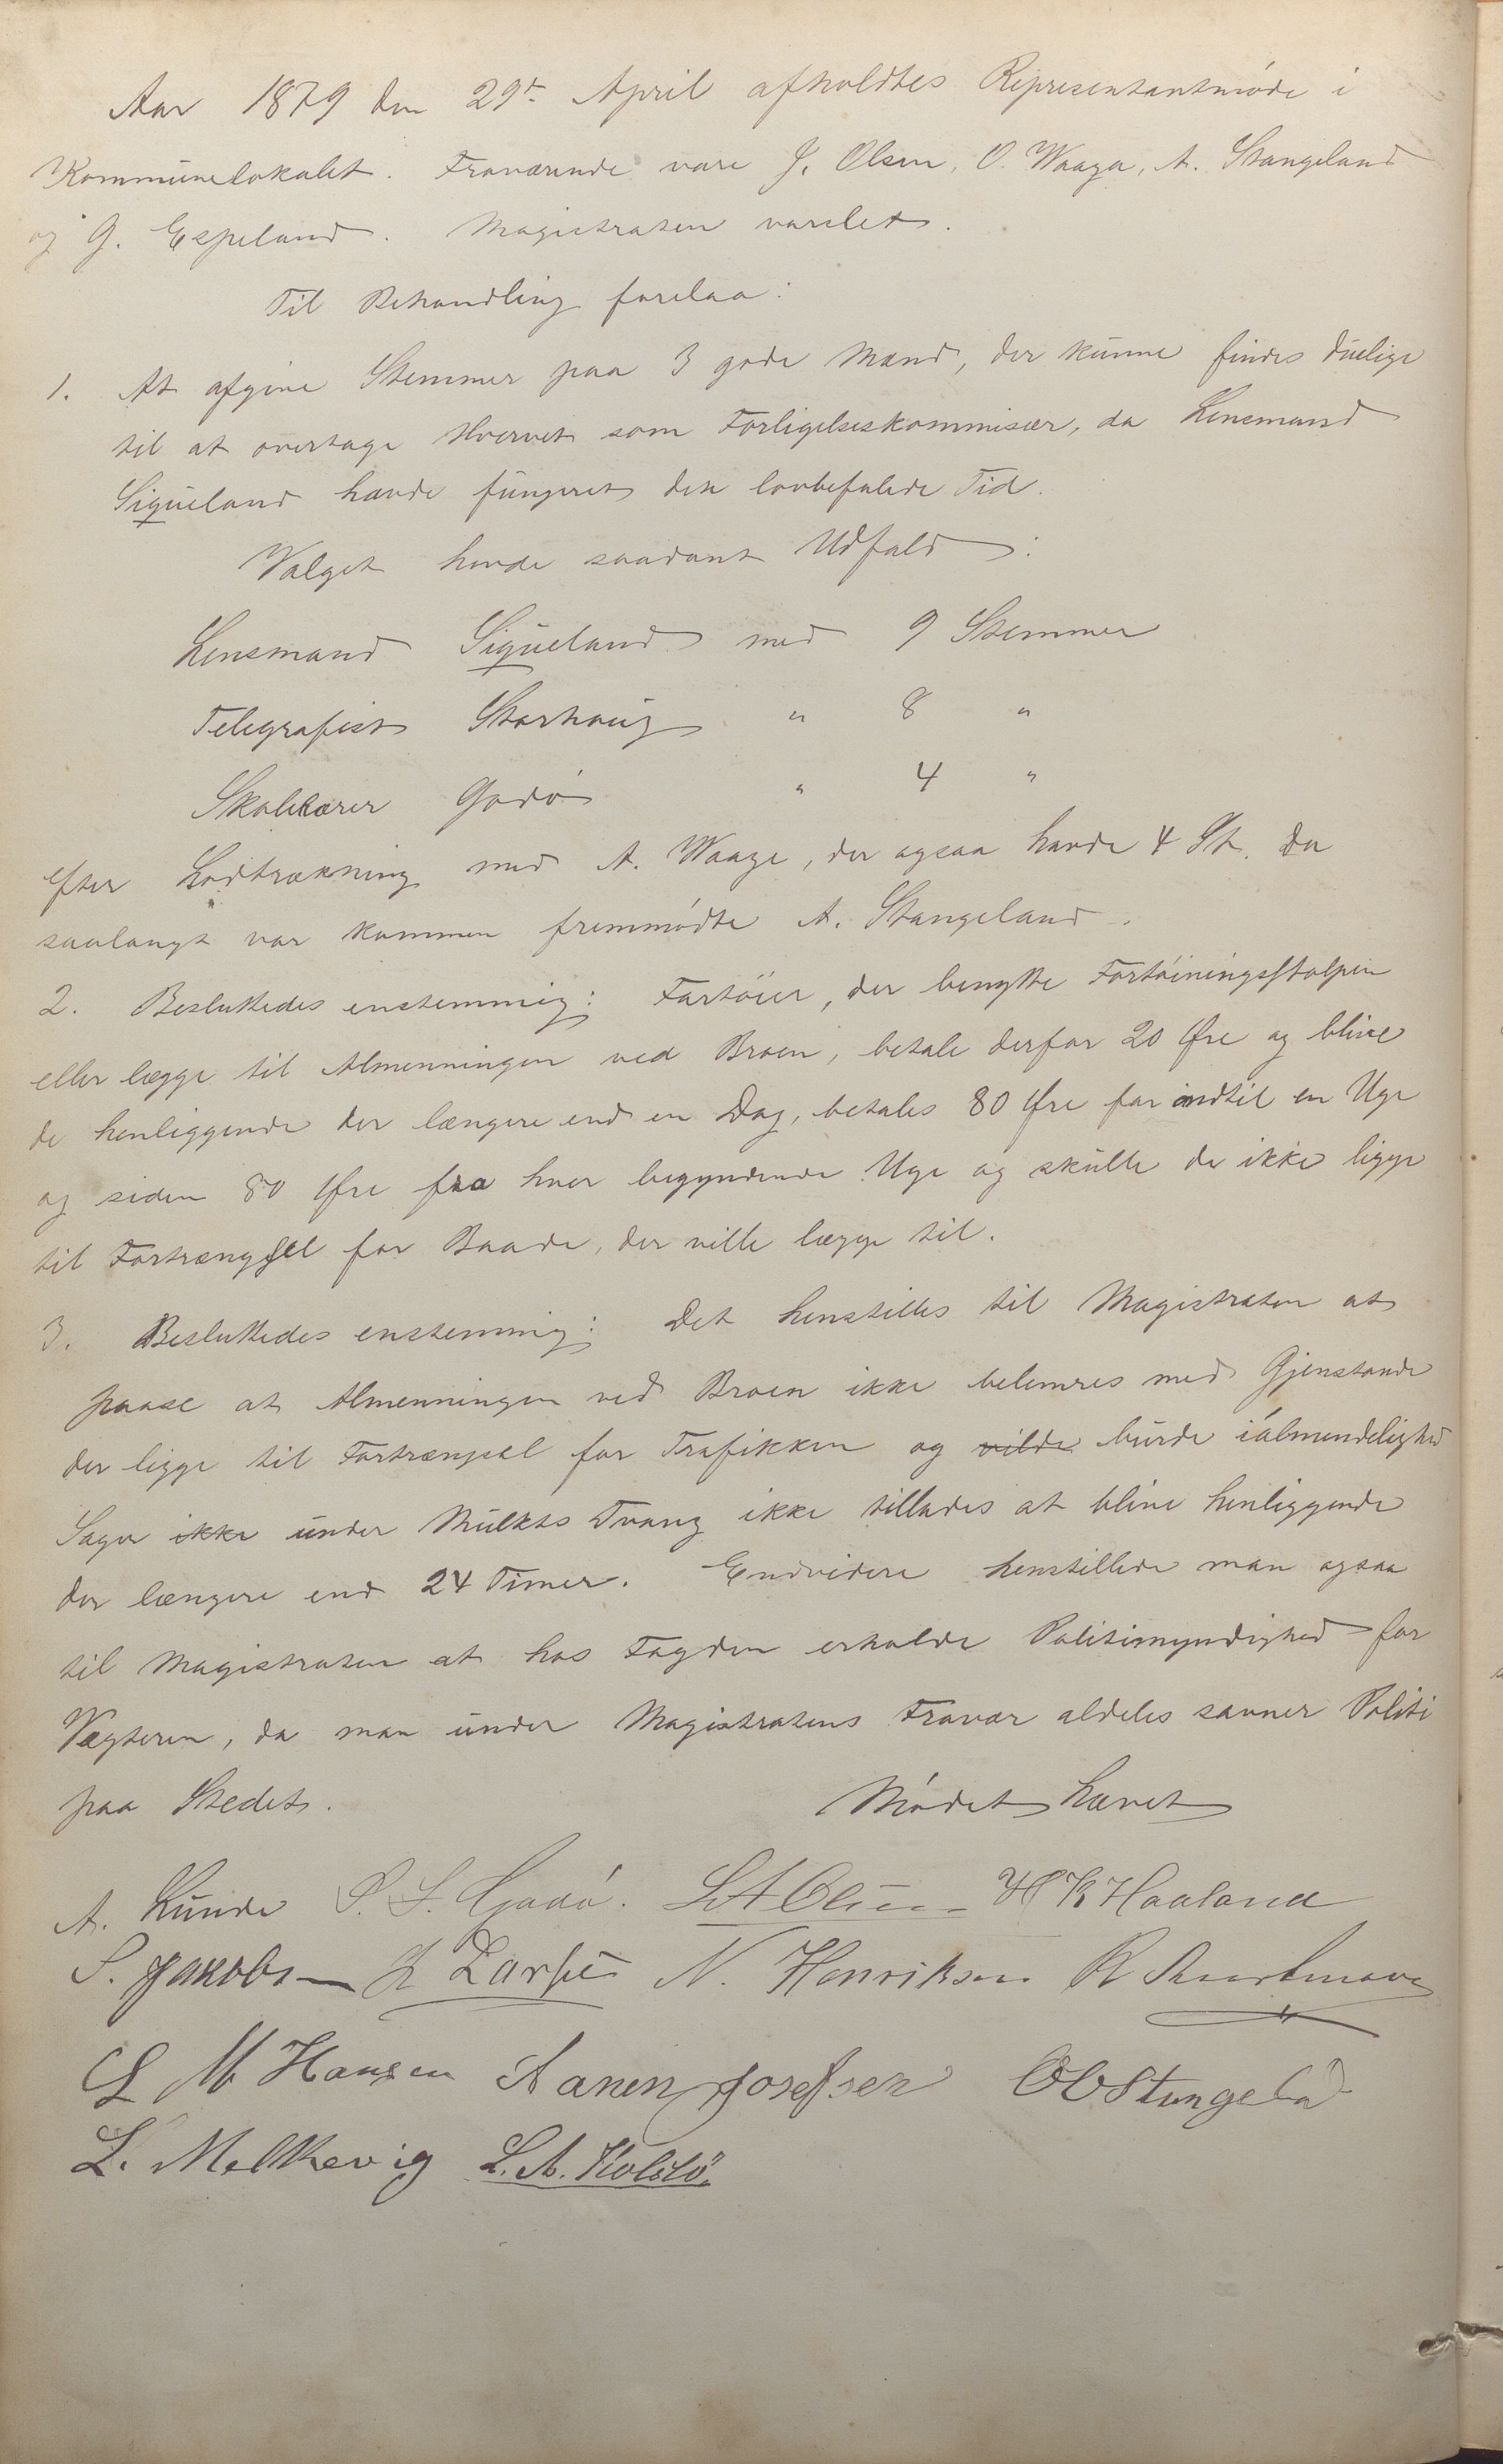 Aar 1879 den 29de April afholdtes Representantmöde i
Kommunelokalet. Fraværende vare J. Olsen, O. Waage, A. Stangeland
og G. Espeland. Magistraten varslet.
Til Behandling forelaa:
1. At afgive Stemmer paa 3 gode Mænd, der kunne findes duelige
til at overtage Hvervet som Forligelseskommisær, da Lensmand
Siqveland havde fungeret den lovbefalede Tid.
Valget havde saadant Udfald:
Lensmand Siqveland med 9 Stemmer
Telegrafist Storhaug " 8 "
Skolelærer Godö " 4 "
efter Lodtrækning med A. Waage, der ogsaa havde 4 St. Da
saalangt var kommen fremmødte A. Stangeland.
2. Besluttedes enstemmig: Fartöier, der benytte Fortöiningsstolpen
eller lægge til Almenningen ved Broen, betale derfor 20 Øre og blive
de henliggende der længere end en Dag, betales 80 Øre for indtil en Uge
og siden 80 Øre fra hver begyndende Uge og skulle de ikke ligge
til Fortrængsel for Baade, der ville lægge til.
3. Besluttedes enstemmig: Det henstilles til Magistraten at
paase at Almenningen ved Broen ikke belemres med Gjenstande
der ligge til Fortrængsel for Trafikken og vilde burde ialmendelighed
Sager ikke under Mulkts Tvang ikke tillades at blive henliggende
der længere end 24 Timer. Endvidere henstillede man ogsaa
til Magistraten at hos Fogden erholde Politimyndighed for
Vægteren, da man under Magistratens Fravær aldeles savner Politi
paa Stedet. Mödet hævet
A. Lunde P. S. Godö. L A Olsen H K Haaland
S. Jakobsen J Larsen N. Henriksen R
L M Hansen Aanen Josefsen O C Stangeland
L. Melkevig L. A. Kolstö.